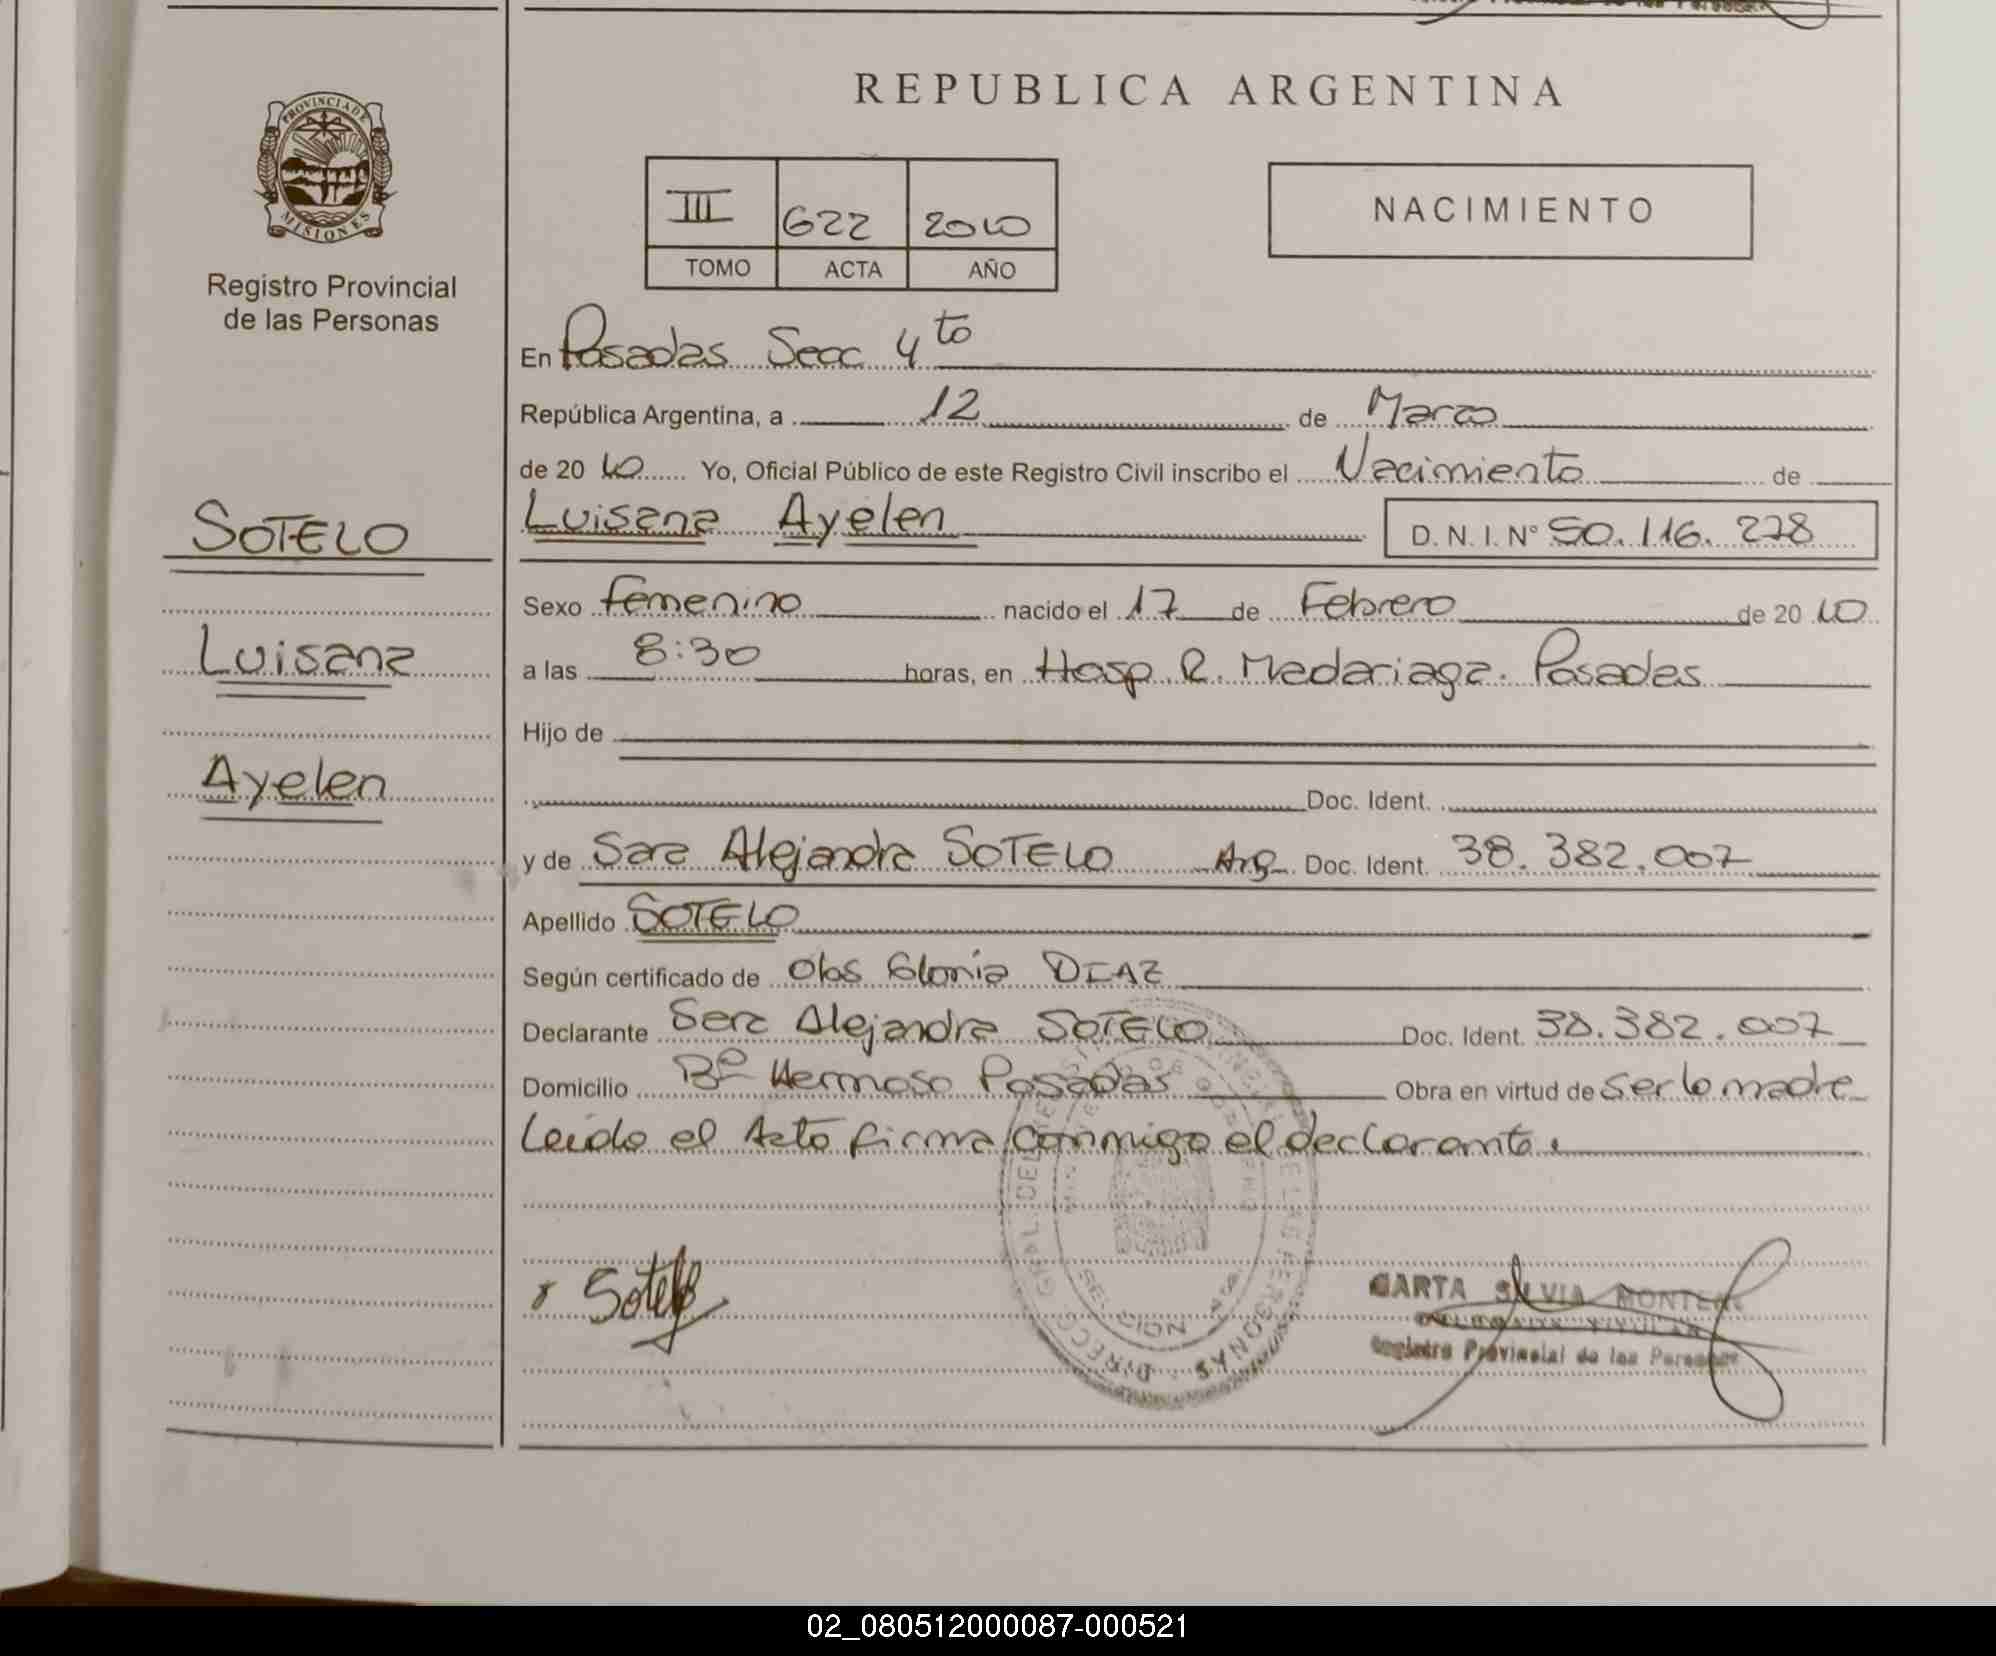 REPUBLICA ARGENTINA
PROVINCIA DE
MISIONES
Registro Provincial
de las Personas
III 622 2010
TOMO ACTA AÑO
NACIMIENTO
En Posadas Secc 4to
República Argentina, a 12 de Marzo
de 2010 Yo, Oficial Público de este Registro Civil inscribo el Nacimiento de
Luisana Ayelen D. N. I. N° 50.116.278
SOTELO
Luisana
Ayelen
Sexo Femenino nacido el 17 de Febrero de 2010
a las 8:30 horas, en Hosp R. Madariaga. Posadas
Hijo de
Doc. Ident.
y de Sara Alejandra SOTELO Arg Doc. Ident. 38.382.007
Apellido SOTELO
Según certificado de Obs Gloria DIAZ
Declarante Sara Alejandra SOTELO Doc. Ident. 38.382.007
Domicilio Bº Hermoso Posadas Obra en virtud de ser la madre
Leido el Acta firma conmigo el declarante.
Sotelo
SILVIA
Registro Provincial de las Personas
02_080512000087-000521